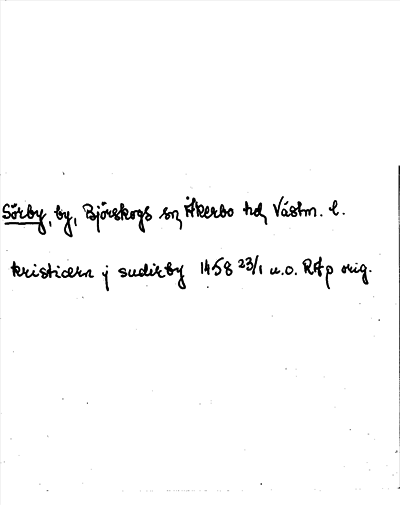 Sörby, by, Björskogs sn, Åkerbo hd, Västm. l.
kristiærn j sudirby 1458 23/1 u.o. RAp orig.